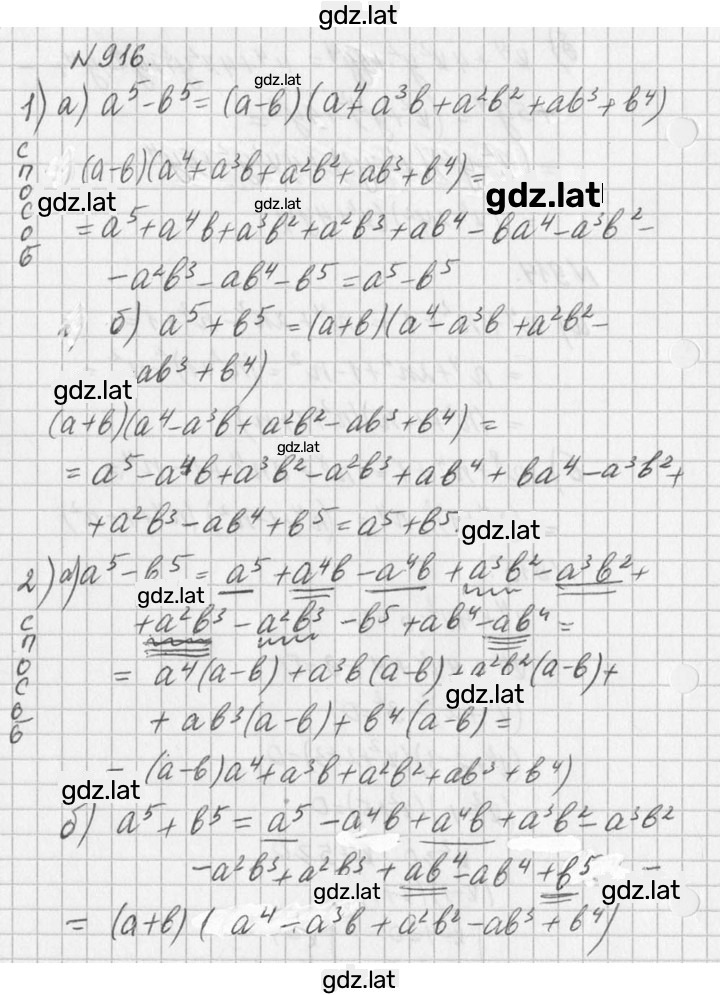 gdz.lat
N 916.
gdz.lat
1) а) a⁵-b⁵ = (a-b)(a⁴+a³b+a²b²+ab³+b⁴)
способ
(a-b)(a⁴+a³b+a²b²+ab³+b⁴)=
gdz.lat gdz.lat gdz.lat
=a⁵+a⁴b+a³b²+a²b³+ab⁴-ba⁴-a³b²-
-a²b³-ab⁴-b⁵=a⁵-b⁵
б) a⁵+b⁵=(a+b)(a⁴-a³b+a²b²-
ab³+b⁴)
gdz.lat
(a+b)(a⁴-a³b+a²b²-ab³+b⁴)=
gdz.lat
=a⁵-a⁴b+a³b²-a²b³+ab⁴+ba⁴-a³b²+
+a²b³-ab⁴+b⁵=a⁵+b⁵.
gdz.lat
2) а) a⁵-b⁵= a⁵+a⁴b-a⁴b+a³b²-a³b²+
gdz.lat
способ
+a²b³-a²b³-b⁵+ab⁴-ab⁴=
= a⁴(a-b)+a³b(a-b)+a²b²(a-b)+
gdz.lat
+ab³(a-b)+b⁴(a-b)=
- (a-b)a⁴+a³b+a²b²+ab³+b⁴)
gdz.lat
б) a⁵+b⁵=a⁵-a⁴b+a⁴b+a³b²-a³b²
-a²b³+a²b³+ab⁴-ab⁴+b⁵. -
gdz.lat gdz.lat
= (a+b)(a⁴-a³b+a²b²-ab³+b⁴)
gdz.lat